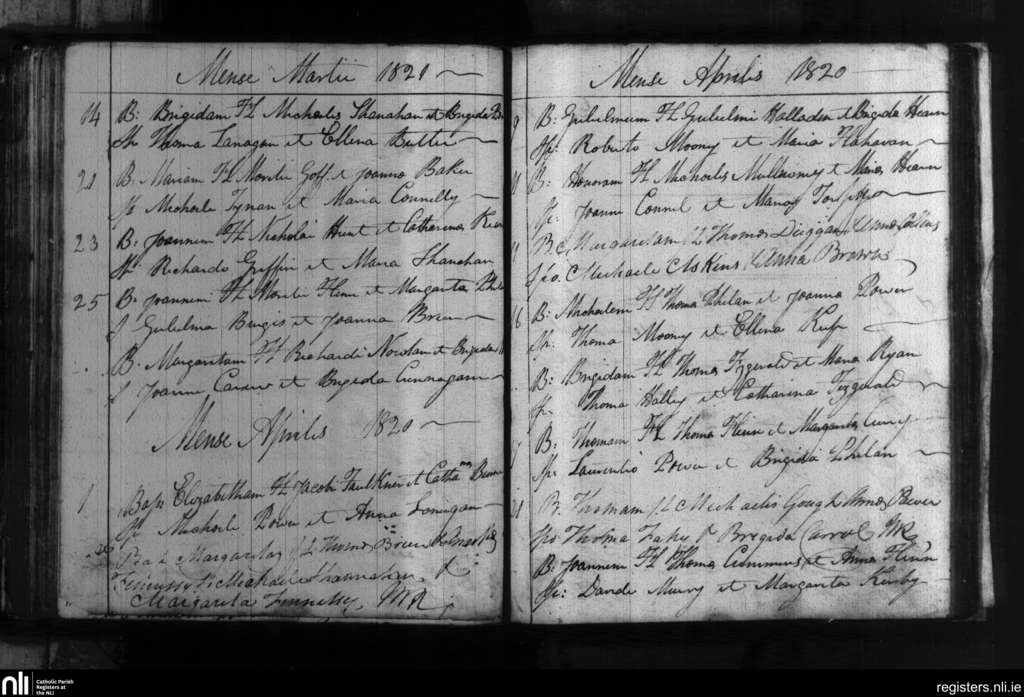 Mense Martii 1821
14 B: Brigidam FL Michaelis Shanahan et Brigida
Sp Thoma Lanagan et Ellena Butler
21 B. Mariam FL Moritii Goff et Joanna Baker
Sp Michaele Tynan et Maria Connelly
23 B: Joannem FL Nicholai Hunt et Catharina
Sp: Richardo Griffin et Maria Shanahan
25 B. Joannem FL Moritii et Margarita
S Gulielmo et Joanna Breen
B. Margaritam FL Richardi Nowlan et Brigida
S Joanne Carew et Brigida Cunnagam
Mense Aprilis 1820
1 Bap: Elizabetham FL Jacobi Faulkner et Catha
Sp Michaele Power et Anna Lonergan
26 Margaritam FL Thoma Breen
Michaele Shannahan
Margarita Fennessy. MR
Mense Aprilis 1820
9 B: Gulielmum FL Gulielmi Halladen et Brigida Hearn
Sp: Roberto Moony et Maria Flahavan
B: Honoram FL Michaelis Mullowney et Maria Hearn
Sp: Joanne Connel et Maria
11 B. Margaritam FL Thoma Duggan Anna
Spo. Michaele Askins & Anna Brown
16 B: Michaelem FL Thoma Phelan et Joanna Power
Sp: Thoma Moony et Ellena
B: Brigidam FL Thoma Fizgerald et Maria Ryan
Sp. Thoma Halley et Catharina Fizgerald
B: Thomam FL Thoma et Margarita
Sp: Laurentio Power et Brigida Phelan
21 B. Thomam FL Michaelis Gough Anna Power
Spo Thoma Fahy & Bregida Carrol MR
B: Joannem FL Thoma Cummins et Anna
Sp: Davide Murry et Margarita Kirby
nli Catholic Parish Registers at the NLI
registers.nli.ie